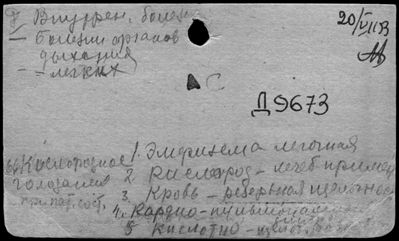 Внутрен. болезн
— Болезни органов
дыхания
— легких
20/VII 83
АС
Д9673
1. Эмфизема легочная
Кислородное
2. Кислород – лечеб. примен
голодание
3. Кровь – резервная щелочнос
при пат. сост.
4. Кардио-пульмонал
5 Кислотно-